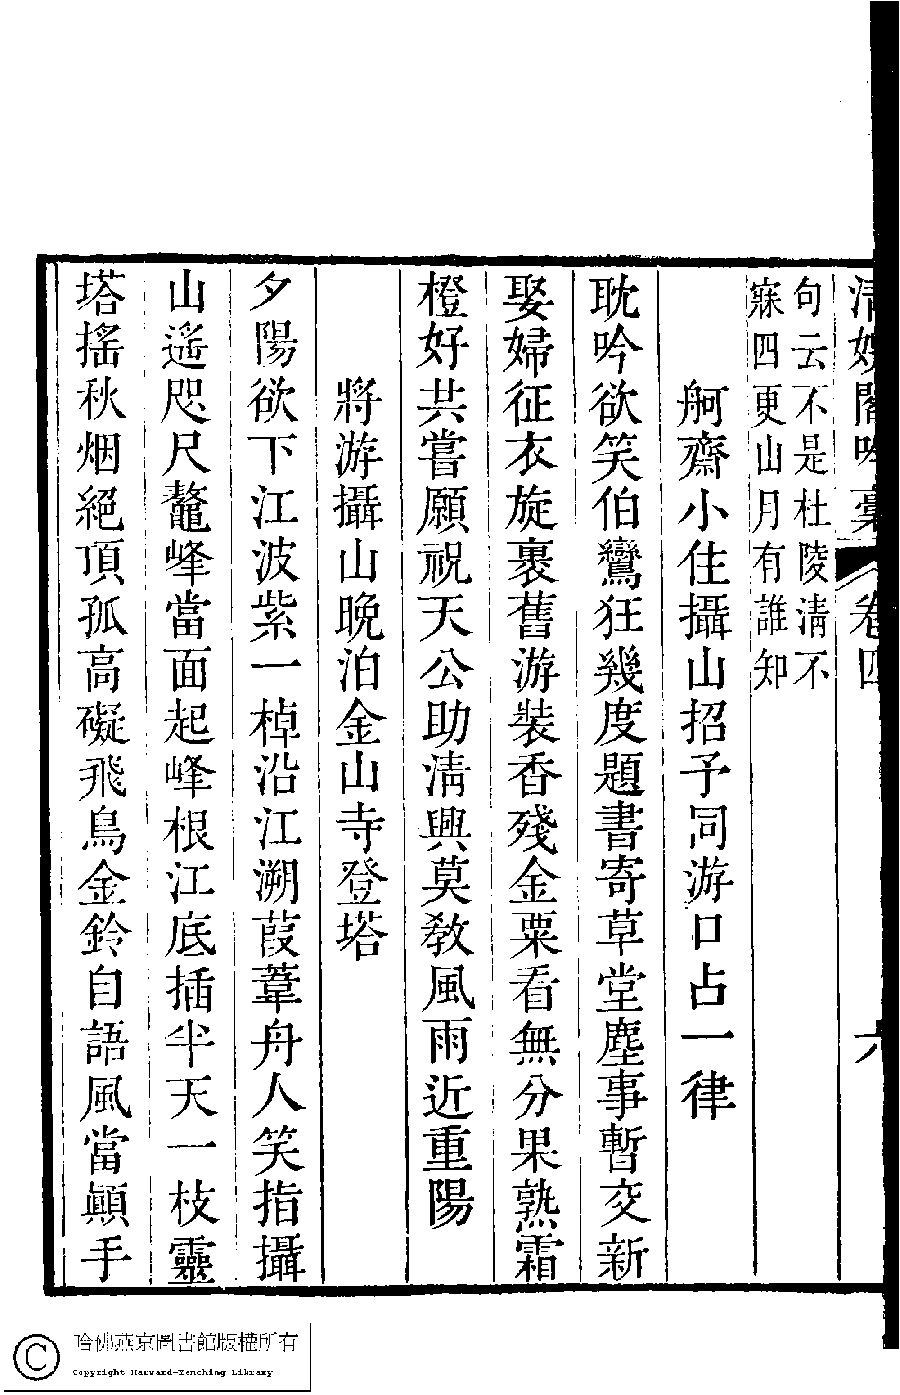 清娛閣吟藁 卷四 六
句云不是杜陵淸不
寐四更山月有誰知
舸齋小住攝山招予同游口占一律
耽吟欲笑伯鸞狂幾度題書寄草堂塵事暫交新
娶婦征衣旋裹舊游裝香殘金粟看無分果熟霜
橙好共嘗願祝天公助淸興莫敎風雨近重陽
將游攝山晩泊金山寺登塔
夕陽欲下江波紫一棹沿江溯葭葦舟人笑指攝
山遙咫尺鼇峰當面起峰根江底插半天一枝靈
塔搖秋烟絕頂孤高礙飛鳥金鈴自語風當顚手
哈佛燕京圖書館版權所有
Copyright Harvard-Yenching Library